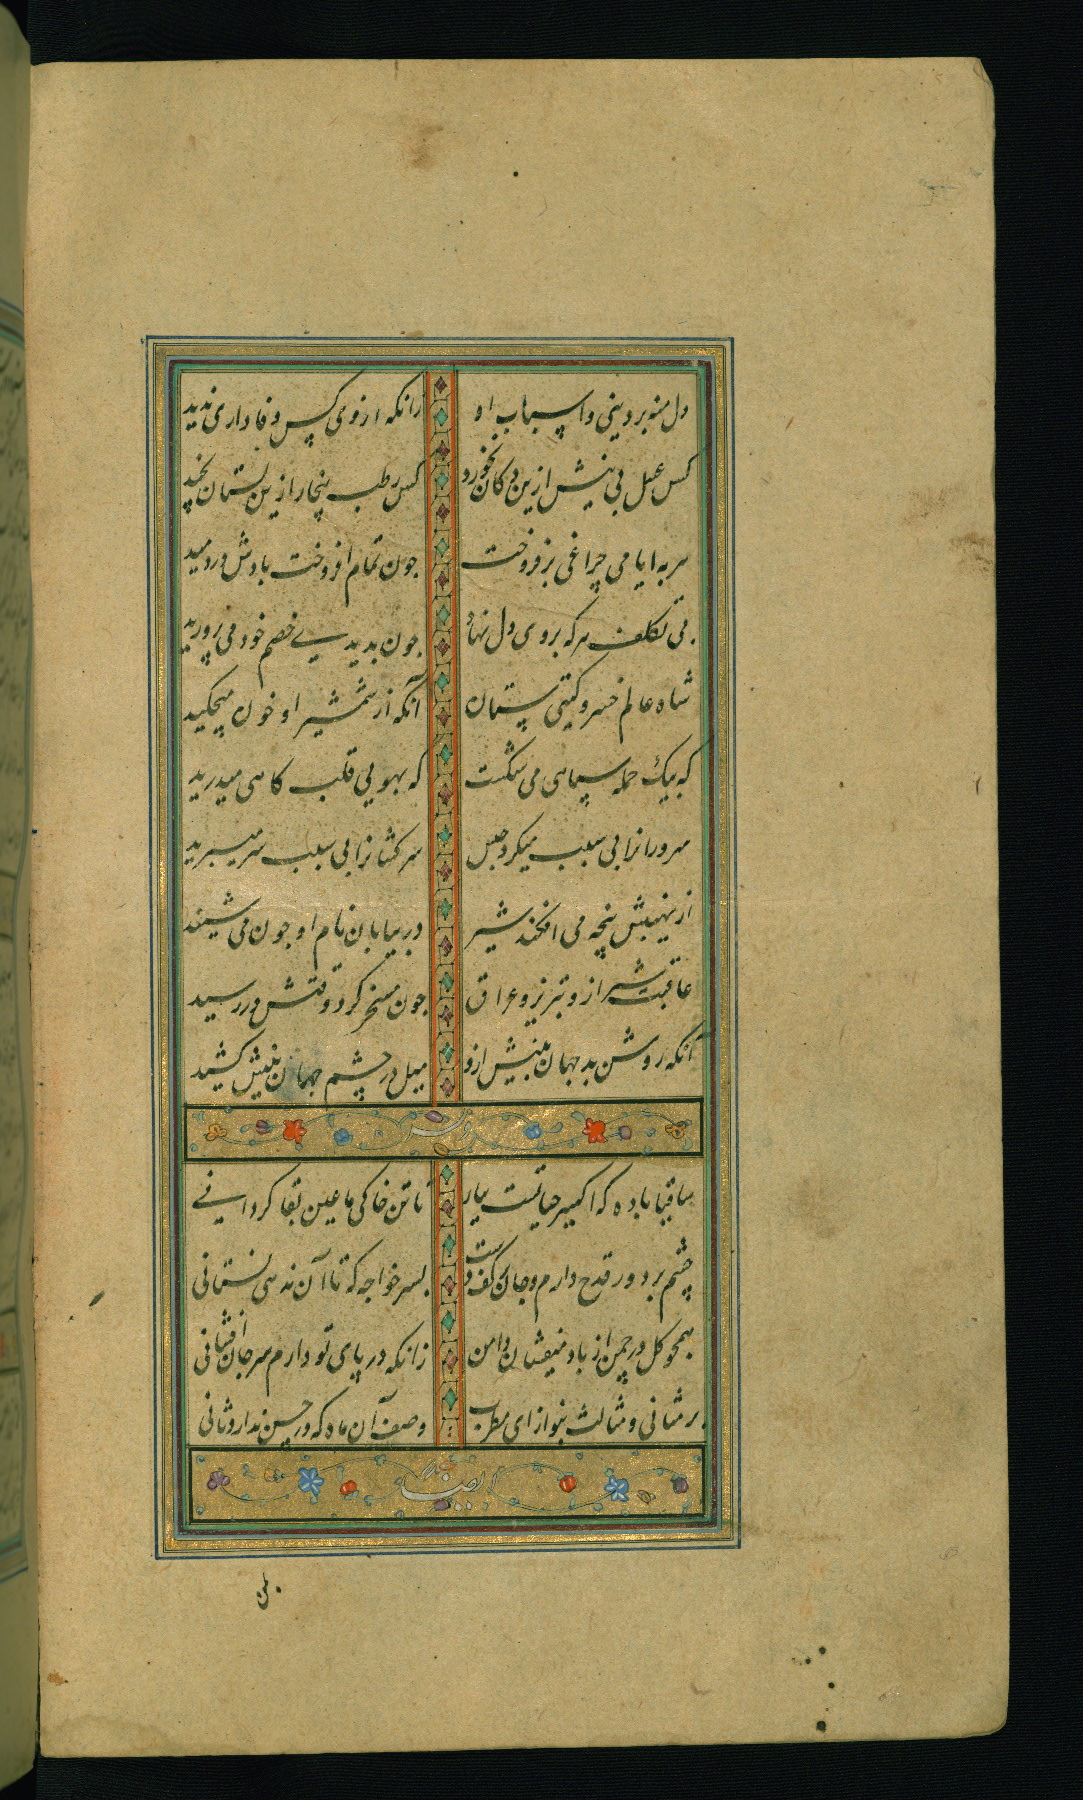 دل منه بر دینی و اسباب او زانکه از وی کس وفاداری ندید
کس عسل بی نیش ازین دکان نخورد کس رطب بیخار ازین بستان نچید
هر به ایامی چراغی بر فروخت جون تمام افروخت بادش در دمید
بی تکلف هر که بر وی دل نهاد جون بدیدی خصم خود می پرورید
شاه عالم خسرو کیتی ستان آنکه از شمشیر او خون میچکید
که بیک حمله سپاهی می شکست که بهویی قلب کاهی میدرید
سرورانرا بی سبب میکرد حبس سرکشانرا بی سبب سر میبرید
از نهیبش پنجه می افکند شیر در بیابان نام او جون می شنید
عاقبت شیراز و تبریز و عراق جون مسخر کرد وقتش در رسید
آنکه روشن بد جهان بینش ازو میل در چشم جهان بینش کشید
ساقیا باده که اکسیر حیاتست بیار تا تن خاکی ما عین بقا کردانی
چشم بر دور قدح دارم و جان بر کف دست بسر خواجه که تا آن ندهی نستانی
همچو کل در چمن از باد میفشان دامن زانکه در پای تو دارم سر جان افشانی
بر مثانی و مثالث بنواز ای مطرب وصف آن ماه که در حسن ندارد ثانی
ایضا